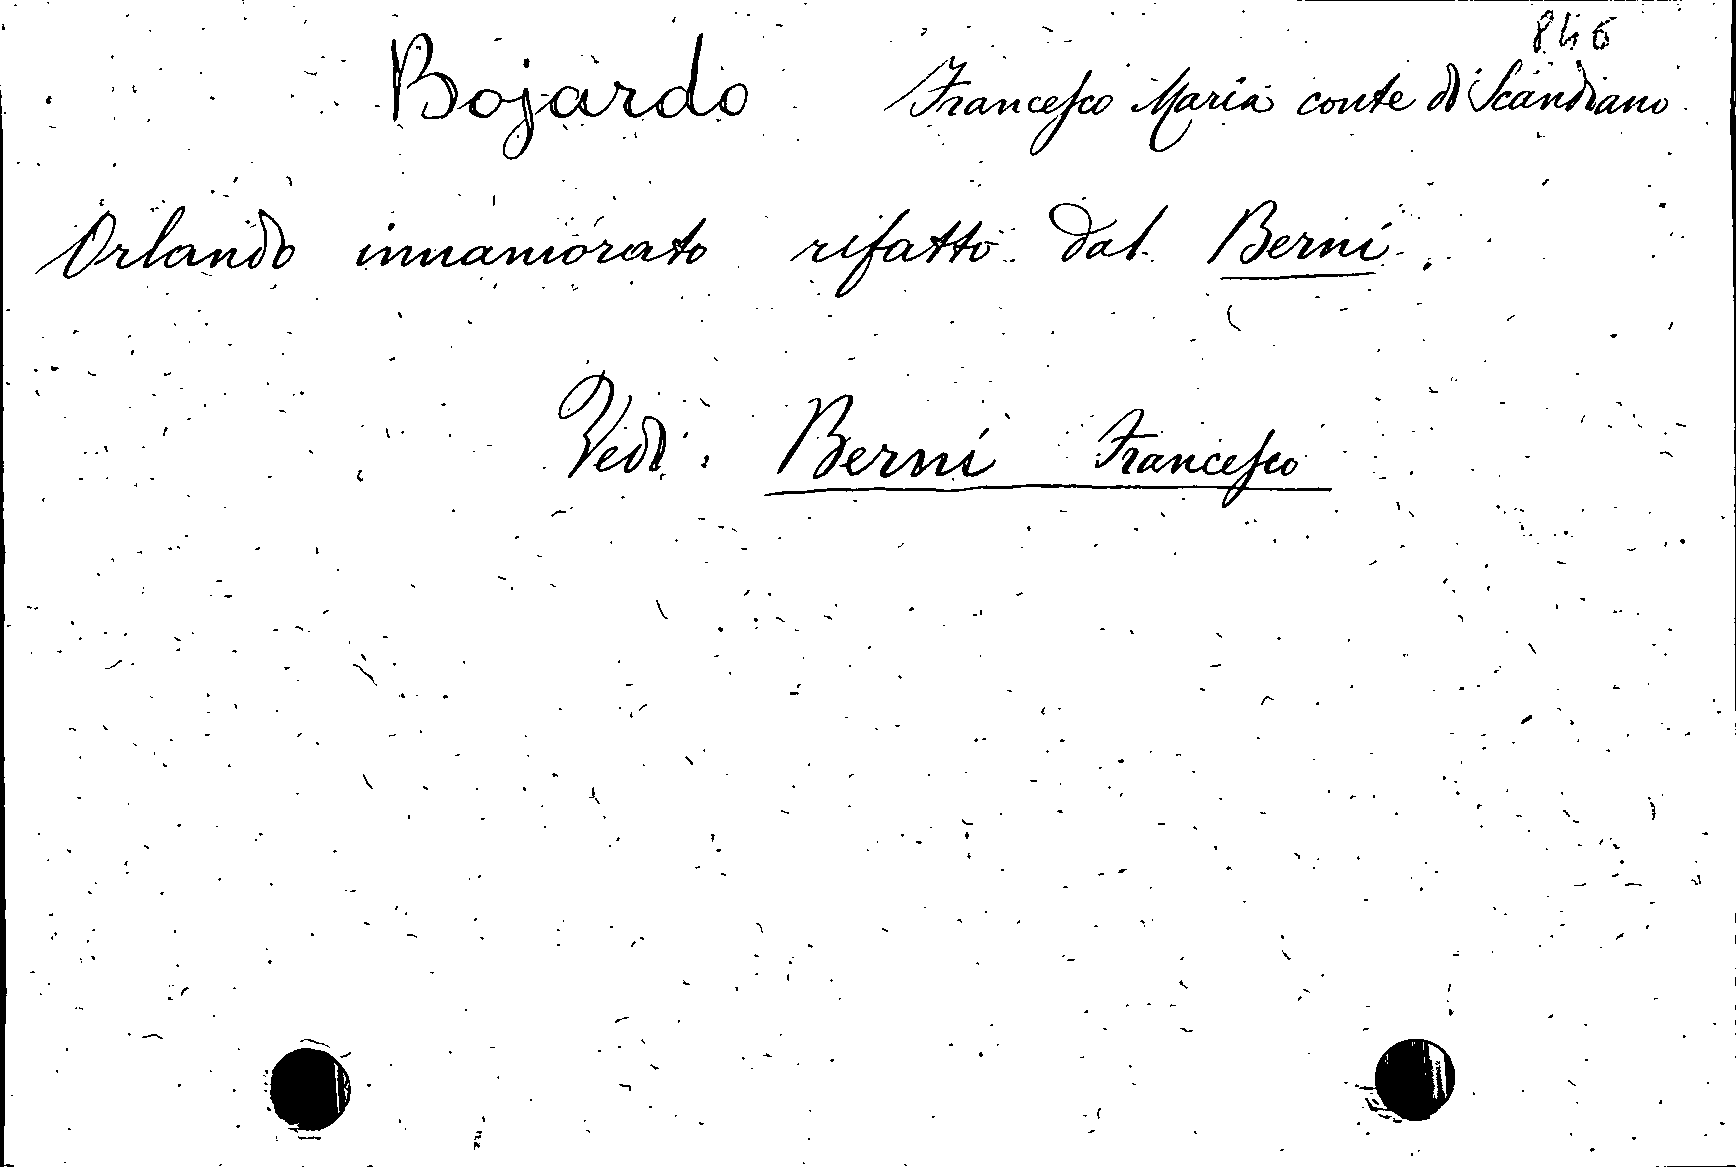 846
Bojardo Francesco Maria conte di Scandiano
Orlando innamorato rifatto dal Berni.
Vedi: Berni Francesco